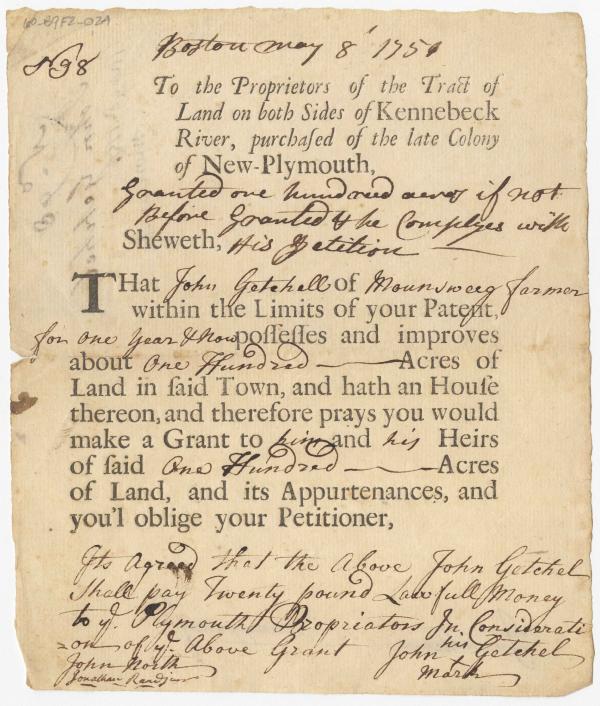 No 98
Boston May 8th 1751
To the Proprietors of the Tract of
Land on both Sides of Kennebeck
River, purchaſed of the late Colony
of New-Plymouth,
Granted one hundred acres if not
Before Granted & he Complyes with
Sheweth, His Petition
THat John Getchell of Mounsweeg farmer
within the Limits of your Patent,
for one Year & now poſſeſſes and improves
about One Hundred Acres of
Land in ſaid Town, and hath an Houſe
thereon, and therefore prays you would
make a Grant to him and his Heirs
of ſaid One Hundred Acres
of Land, and its Appurtenances, and
you'l oblige your Petitioner,
Its Agreed that the Above John Getchel
Shall pay Twenty pound Lawfull Money
to ye. Plymouth Propriators In Considerati
=on of ye. Above Grant John his Getchel
John North mark
Jonathan